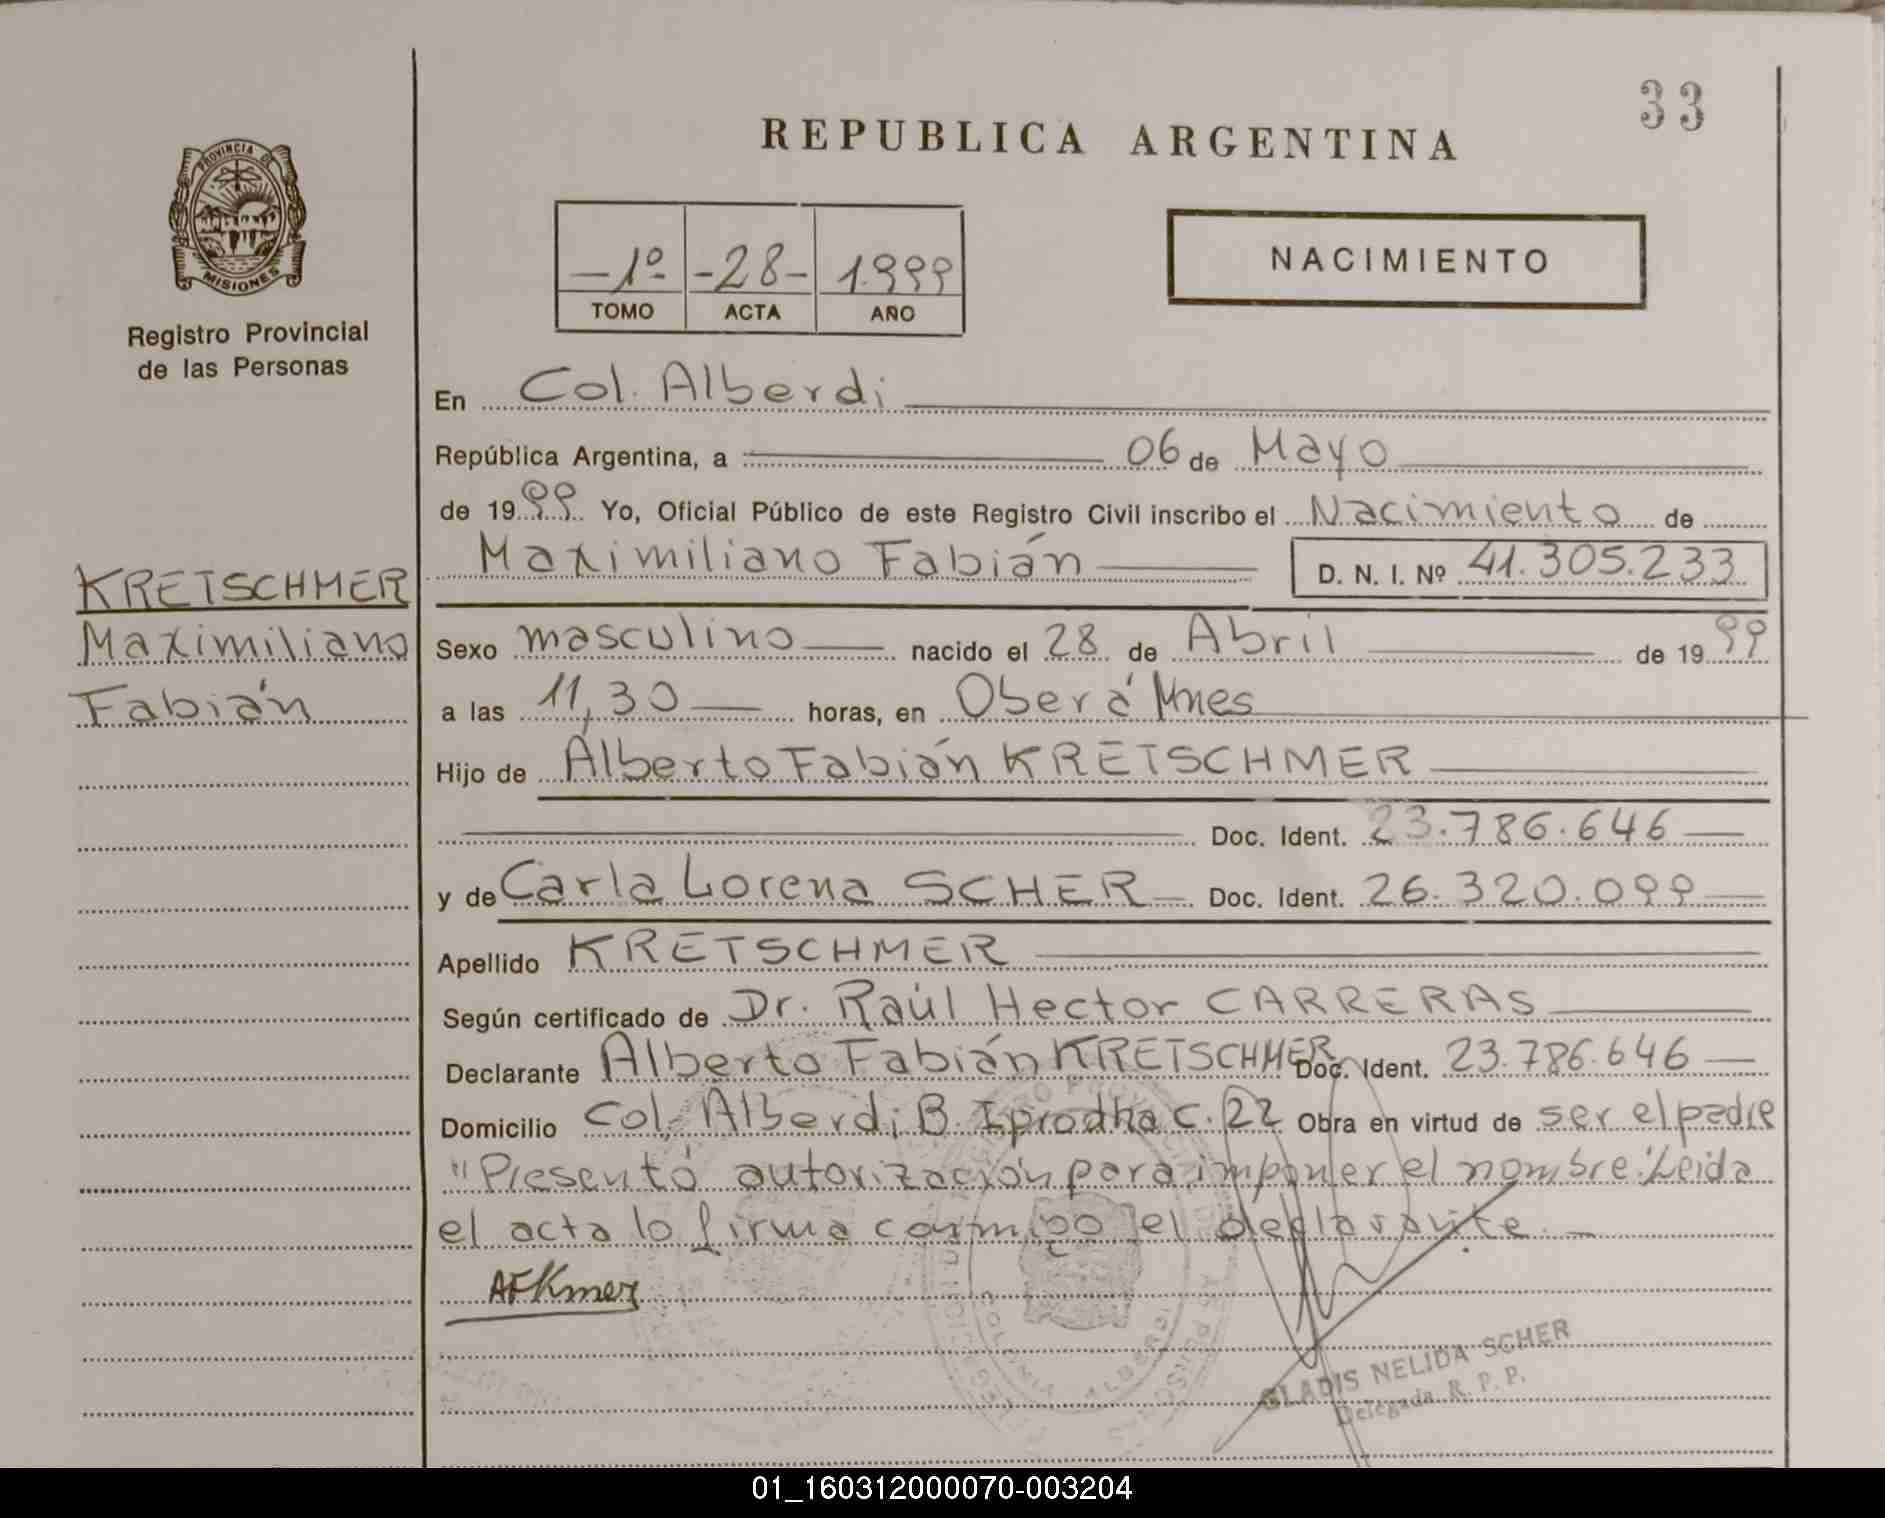 33
REPUBLICA ARGENTINA
PROVINCIA DE
MISIONES
Registro Provincial
de las Personas
-1º- -28- 1.999
TOMO ACTA AÑO
NACIMIENTO
En Col. Alberdi
República Argentina, a 06 de Mayo
de 1999 Yo, Oficial Público de este Registro Civil inscribo el Nacimiento de
Maximiliano Fabián D. N. I. Nº 41.305.233
KRETSCHMER
Maximiliano
Fabián
Sexo masculino nacido el 28 de Abril de 1999
a las 11,30 horas, en Oberá Mnes
Hijo de Alberto Fabián KRETSCHMER
Doc. Ident. 23.786.646
y de Carla Lorena SCHER Doc. Ident. 26.320.099
Apellido KRETSCHMER
Según certificado de Dr. Raúl Hector CARRERAS
Declarante Alberto Fabián KRETSCHMER Doc. Ident. 23.786.646
Domicilio Col. Alberdi B. Iprodha C. 22 Obra en virtud de ser el padre
"Presentó autorización para imponer el nombre". Leida
el acta lo firma conmigo el declarante.-
AFKmer
COLONIA ALBERDI
GLADIS NELIDA SCHER
Delegada R. P. P.
01_160312000070-003204